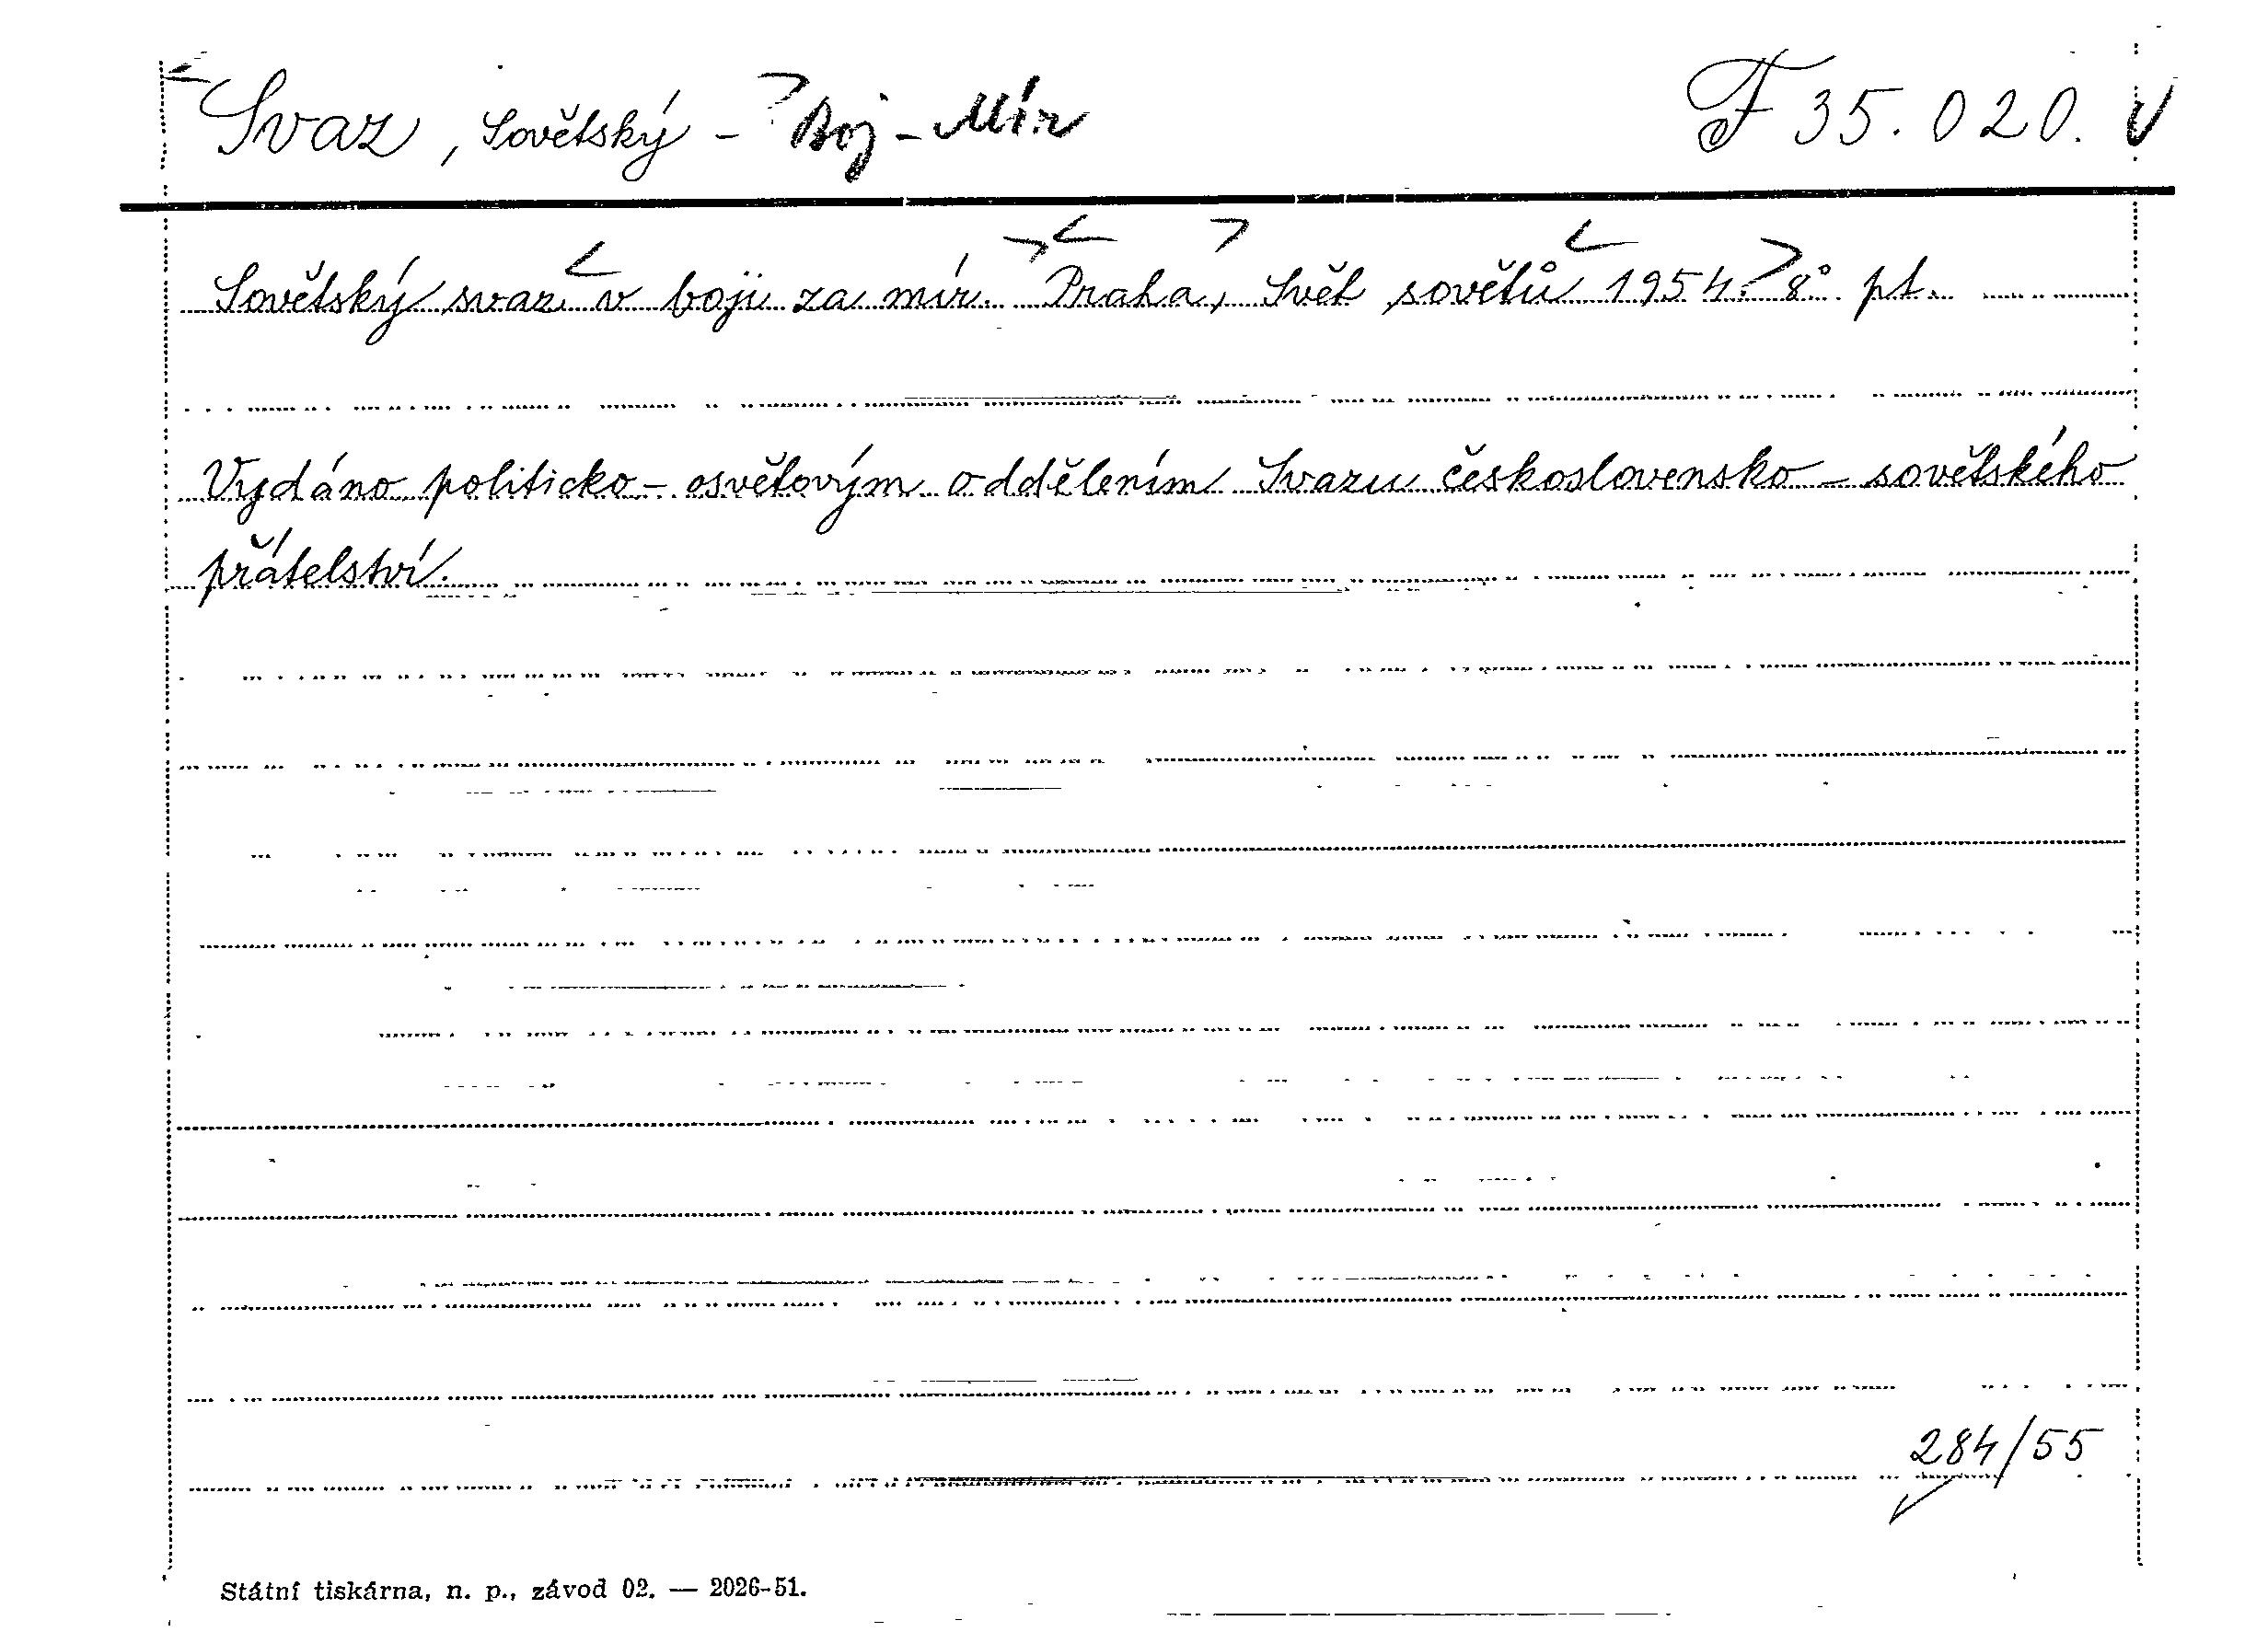 Svaz, Sovětský - Boj - Mír F 35.020. V
Sovětský svaz v boji za mír. Praha, Svět sovětů 1954. 8° pt.
Vydáno politicko - osvětovým oddělením Svazu československo - sovětského
přátelství.
284/55
Státní tiskárna, n. p., závod 02. — 2026-51.